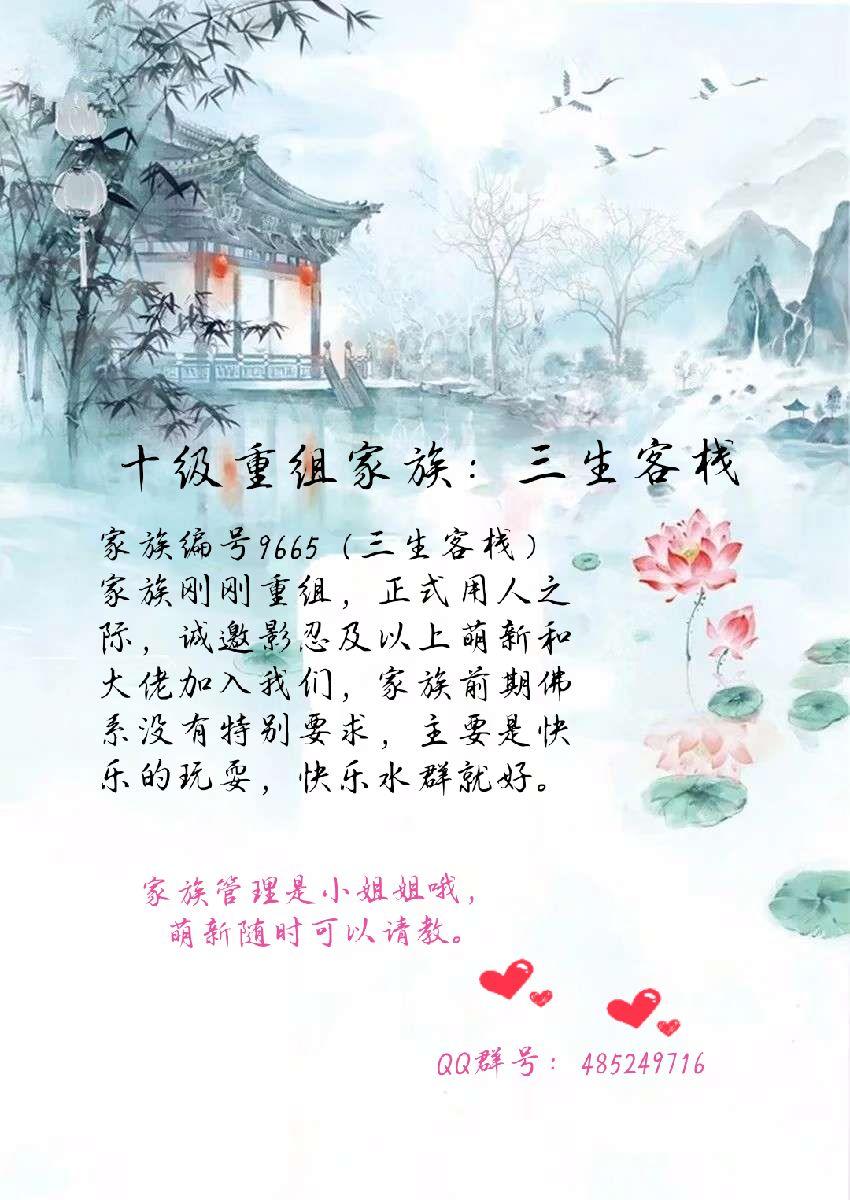 十级重组家族：三生客栈
家族编号9665（三生客栈）
家族刚刚重组，正式用人之
际，诚邀影忍及以上萌新和
大佬加入我们，家族前期佛
系没有特别要求，主要是快
乐的玩耍，快乐水群就好。
家族管理是小姐姐哦，
萌新随时可以请教。
QQ群号：485249716